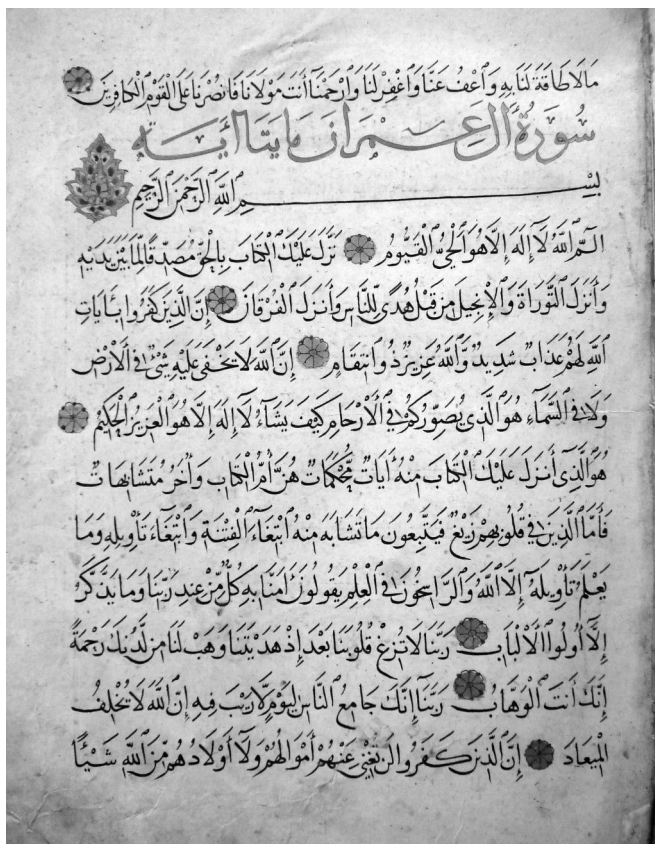 مَا لَا طَاقَةَ لَنَا بِهِ وَاعْفُ عَنَّا وَاغْفِرْ لَنَا وَارْحَمْنَا أَنْتَ مَوْلَانَا فَانْصُرْنَا عَلَى الْقَوْمِ الْكَافِرِينَ
سُورَةُ آلِ عِمْرَانَ مِايَتَا آيَه
بِسْمِ اللَّهِ الرَّحْمَنِ الرَّحِيمِ
الم اللَّهُ لَا إِلَهَ إِلَّا هُوَ الْحَيُّ الْقَيُّومُ نَزَّلَ عَلَيْكَ الْكِتَابَ بِالْحَقِّ مُصَدِّقًا لِمَا بَيْنَ يَدَيْهِ
وَأَنْزَلَ التَّوْرَاةَ وَالْإِنْجِيلَ مِنْ قَبْلُ هُدًى لِلنَّاسِ وَأَنْزَلَ الْفُرْقَانَ إِنَّ الَّذِينَ كَفَرُوا بِآيَاتِ
اللَّهِ لَهُمْ عَذَابٌ شَدِيدٌ وَاللَّهُ عَزِيزٌ ذُو انْتِقَامٍ إِنَّ اللَّهَ لَا يَخْفَى عَلَيْهِ شَيْءٌ فِي الْأَرْضِ
وَلَا فِي السَّمَاءِ هُوَ الَّذِي يُصَوِّرُكُمْ فِي الْأَرْحَامِ كَيْفَ يَشَاءُ لَا إِلَهَ إِلَّا هُوَ الْعَزِيزُ الْحَكِيمُ
هُوَ الَّذِي أَنْزَلَ عَلَيْكَ الْكِتَابَ مِنْهُ آيَاتٌ مُحْكَمَاتٌ هُنَّ أُمُّ الْكِتَابِ وَأُخَرُ مُتَشَابِهَاتٌ
فَأَمَّا الَّذِينَ فِي قُلُوبِهِمْ زَيْغٌ فَيَتَّبِعُونَ مَا تَشَابَهَ مِنْهُ ابْتِغَاءَ الْفِتْنَةِ وَابْتِغَاءَ تَأْوِيلِهِ وَمَا
يَعْلَمُ تَأْوِيلَهُ إِلَّا اللَّهُ وَالرَّاسِخُونَ فِي الْعِلْمِ يَقُولُونَ آمَنَّا بِهِ كُلٌّ مِنْ عِنْدِ رَبِّنَا وَمَا يَذَّكَّرُ
إِلَّا أُولُوا الْأَلْبَابِ رَبَّنَا لَا تُزِغْ قُلُوبَنَا بَعْدَ إِذْ هَدَيْتَنَا وَهَبْ لَنَا مِنْ لَدُنْكَ رَحْمَةً
إِنَّكَ أَنْتَ الْوَهَّابُ رَبَّنَا إِنَّكَ جَامِعُ النَّاسِ لِيَوْمٍ لَا رَيْبَ فِيهِ إِنَّ اللَّهَ لَا يُخْلِفُ
الْمِيعَادَ إِنَّ الَّذِينَ كَفَرُوا لَنْ تُغْنِيَ عَنْهُمْ أَمْوَالُهُمْ وَلَا أَوْلَادُهُمْ مِنَ اللَّهِ شَيْئًا